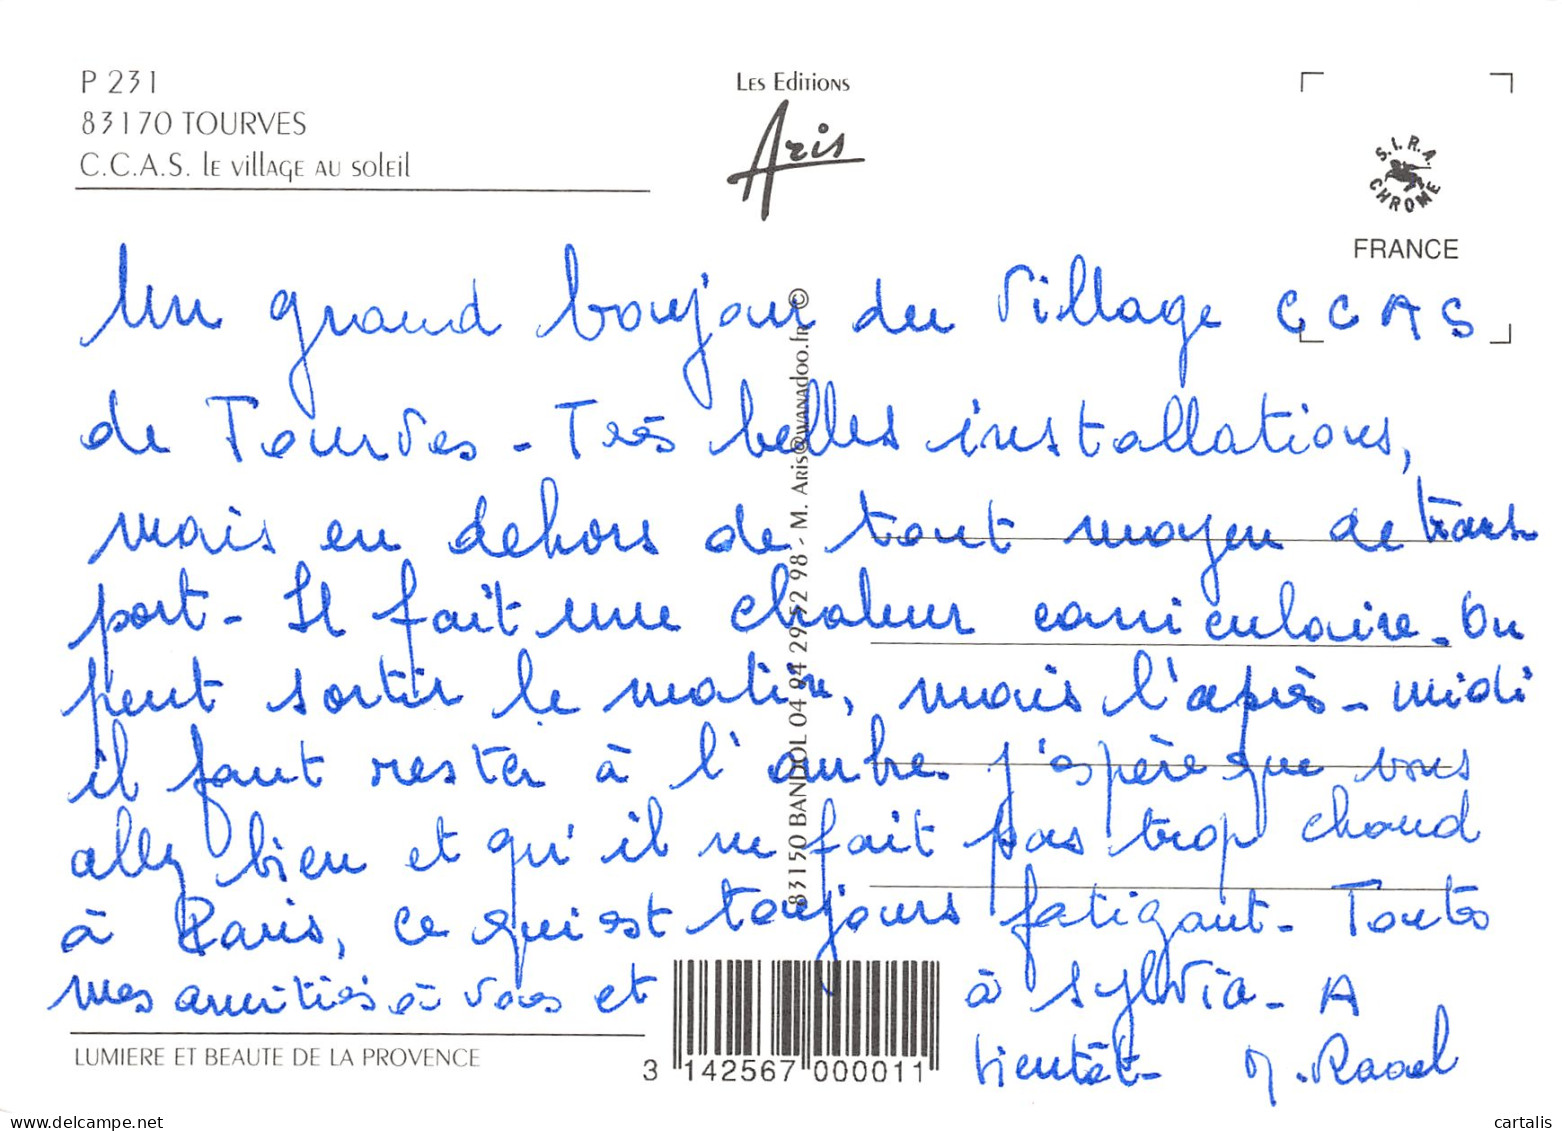 P 231
83170 TOURVES
C.C.A.S. le village au soleil
Les Editions
Aris
S.I.R.A.
CHROME
FRANCE
Un grand boujour du Village CCAS
de Tourves - Très belles installations,
mais en dehors de tout moyen de trans
port - Il fait une chaleur caniculaire - On
peut sortir le matin, mais l'après-midi
il faut rester à l'ombre. J'espère que vous
allez bien et qu'il ne fait pas trop chaud
à Paris, ce qui est toujours fatigant - Toutes
mes amitiés à vous et à Sylvia - A
bientôt - M. Raoul
83150 BANDOL 04 94 29 52 98 - M. Aris@wanadoo.fr ©
LUMIERE ET BEAUTE DE LA PROVENCE
3 142567 000011
www.delcampe.net
cartalis